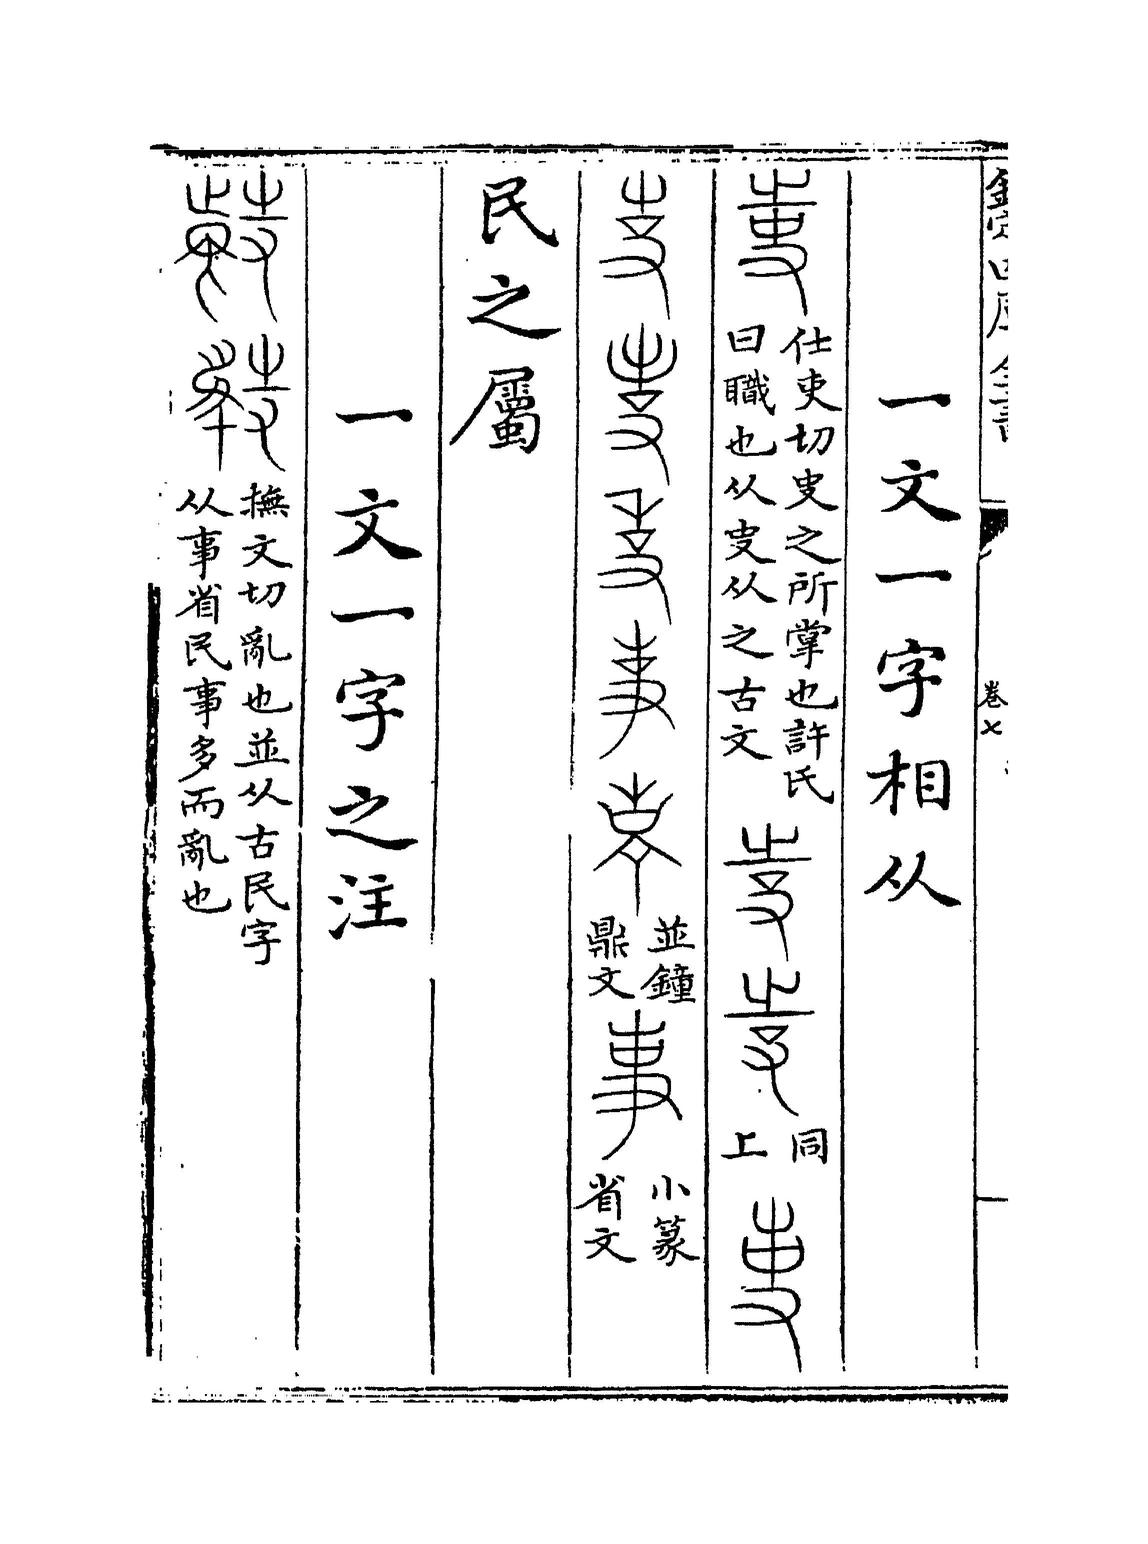 欽定四庫全書
卷七
一文一字相从
仕吏切㕜之所掌也許氏
曰職也从㕜从之古文
同
上
並鐘
鼎文
小篆
省文
民之屬
一文一字之注
撫文切亂也並从古民字
从事省民事多而亂也